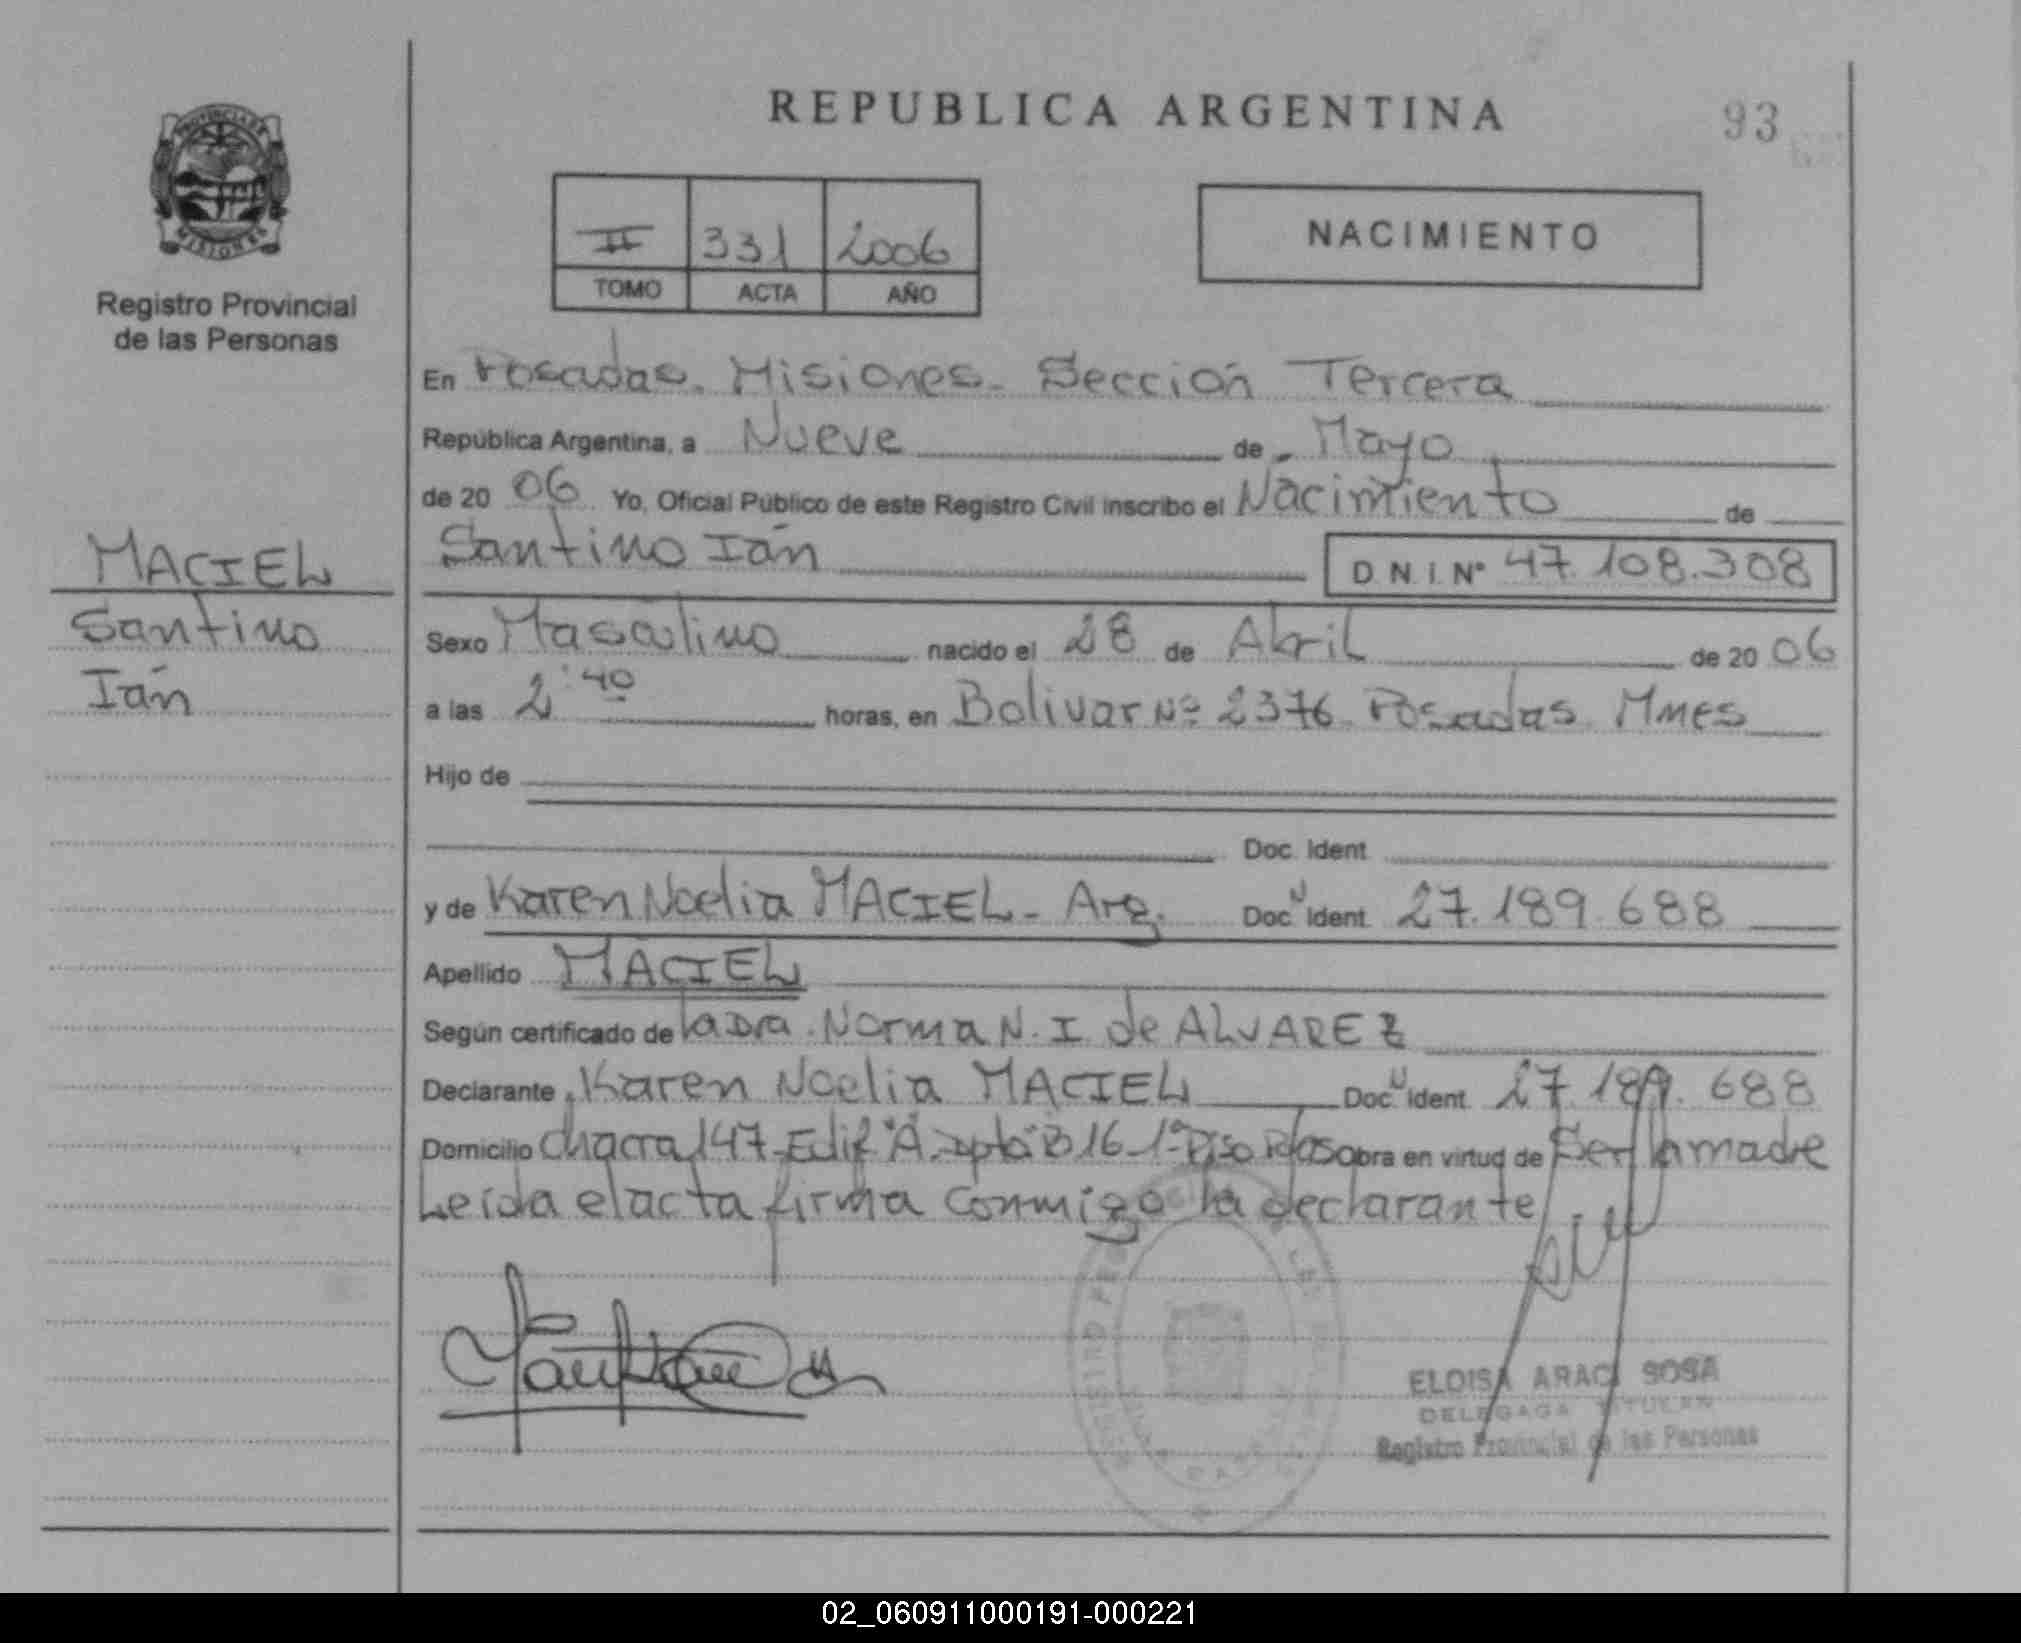 REPUBLICA ARGENTINA
93
PROVINCIA DE
MISIONES
Registro Provincial
de las Personas
II 331 2006
TOMO ACTA AÑO
NACIMIENTO
En Posadas. Misiones. Sección Tercera
República Argentina, a Nueve de Mayo
de 20 06 Yo, Oficial Público de este Registro Civil inscribo el Nacimiento de
Santino Ián D.N.I. Nº 47.108.308
MACIEL
Santino
Ián
Sexo Masculino nacido el 28 de Abril de 20 06
a las 2:40 horas, en Bolivar Nº 2376 Posadas Mnes
Hijo de
Doc. Ident.
y de Karen Noelia MACIEL - Arg. Doc. N Ident. 27.189.688
Apellido MACIEL
Según certificado de la Dra. Norma N. I. de ALVAREZ
Declarante Karen Noelia MACIEL Doc. N Ident. 27.189.688
Domicilio chacra 147-Edif "A" Dpto "B" 16-1º Piso Pdas obra en virtud de Ser la madre
Leida el acta firma conmigo la declarante
ELOISA ARACI SOSA
DELEGADA TITULAR
Registro Provincial de las Personas
02_060911000191-000221